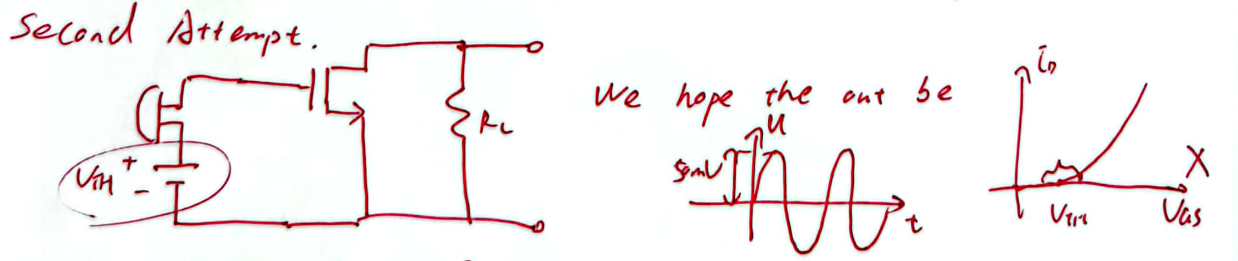 Second Attempt.
VTH + -
RL
We hope the out be
u
50mV
t
iD
X
VTH
VGS